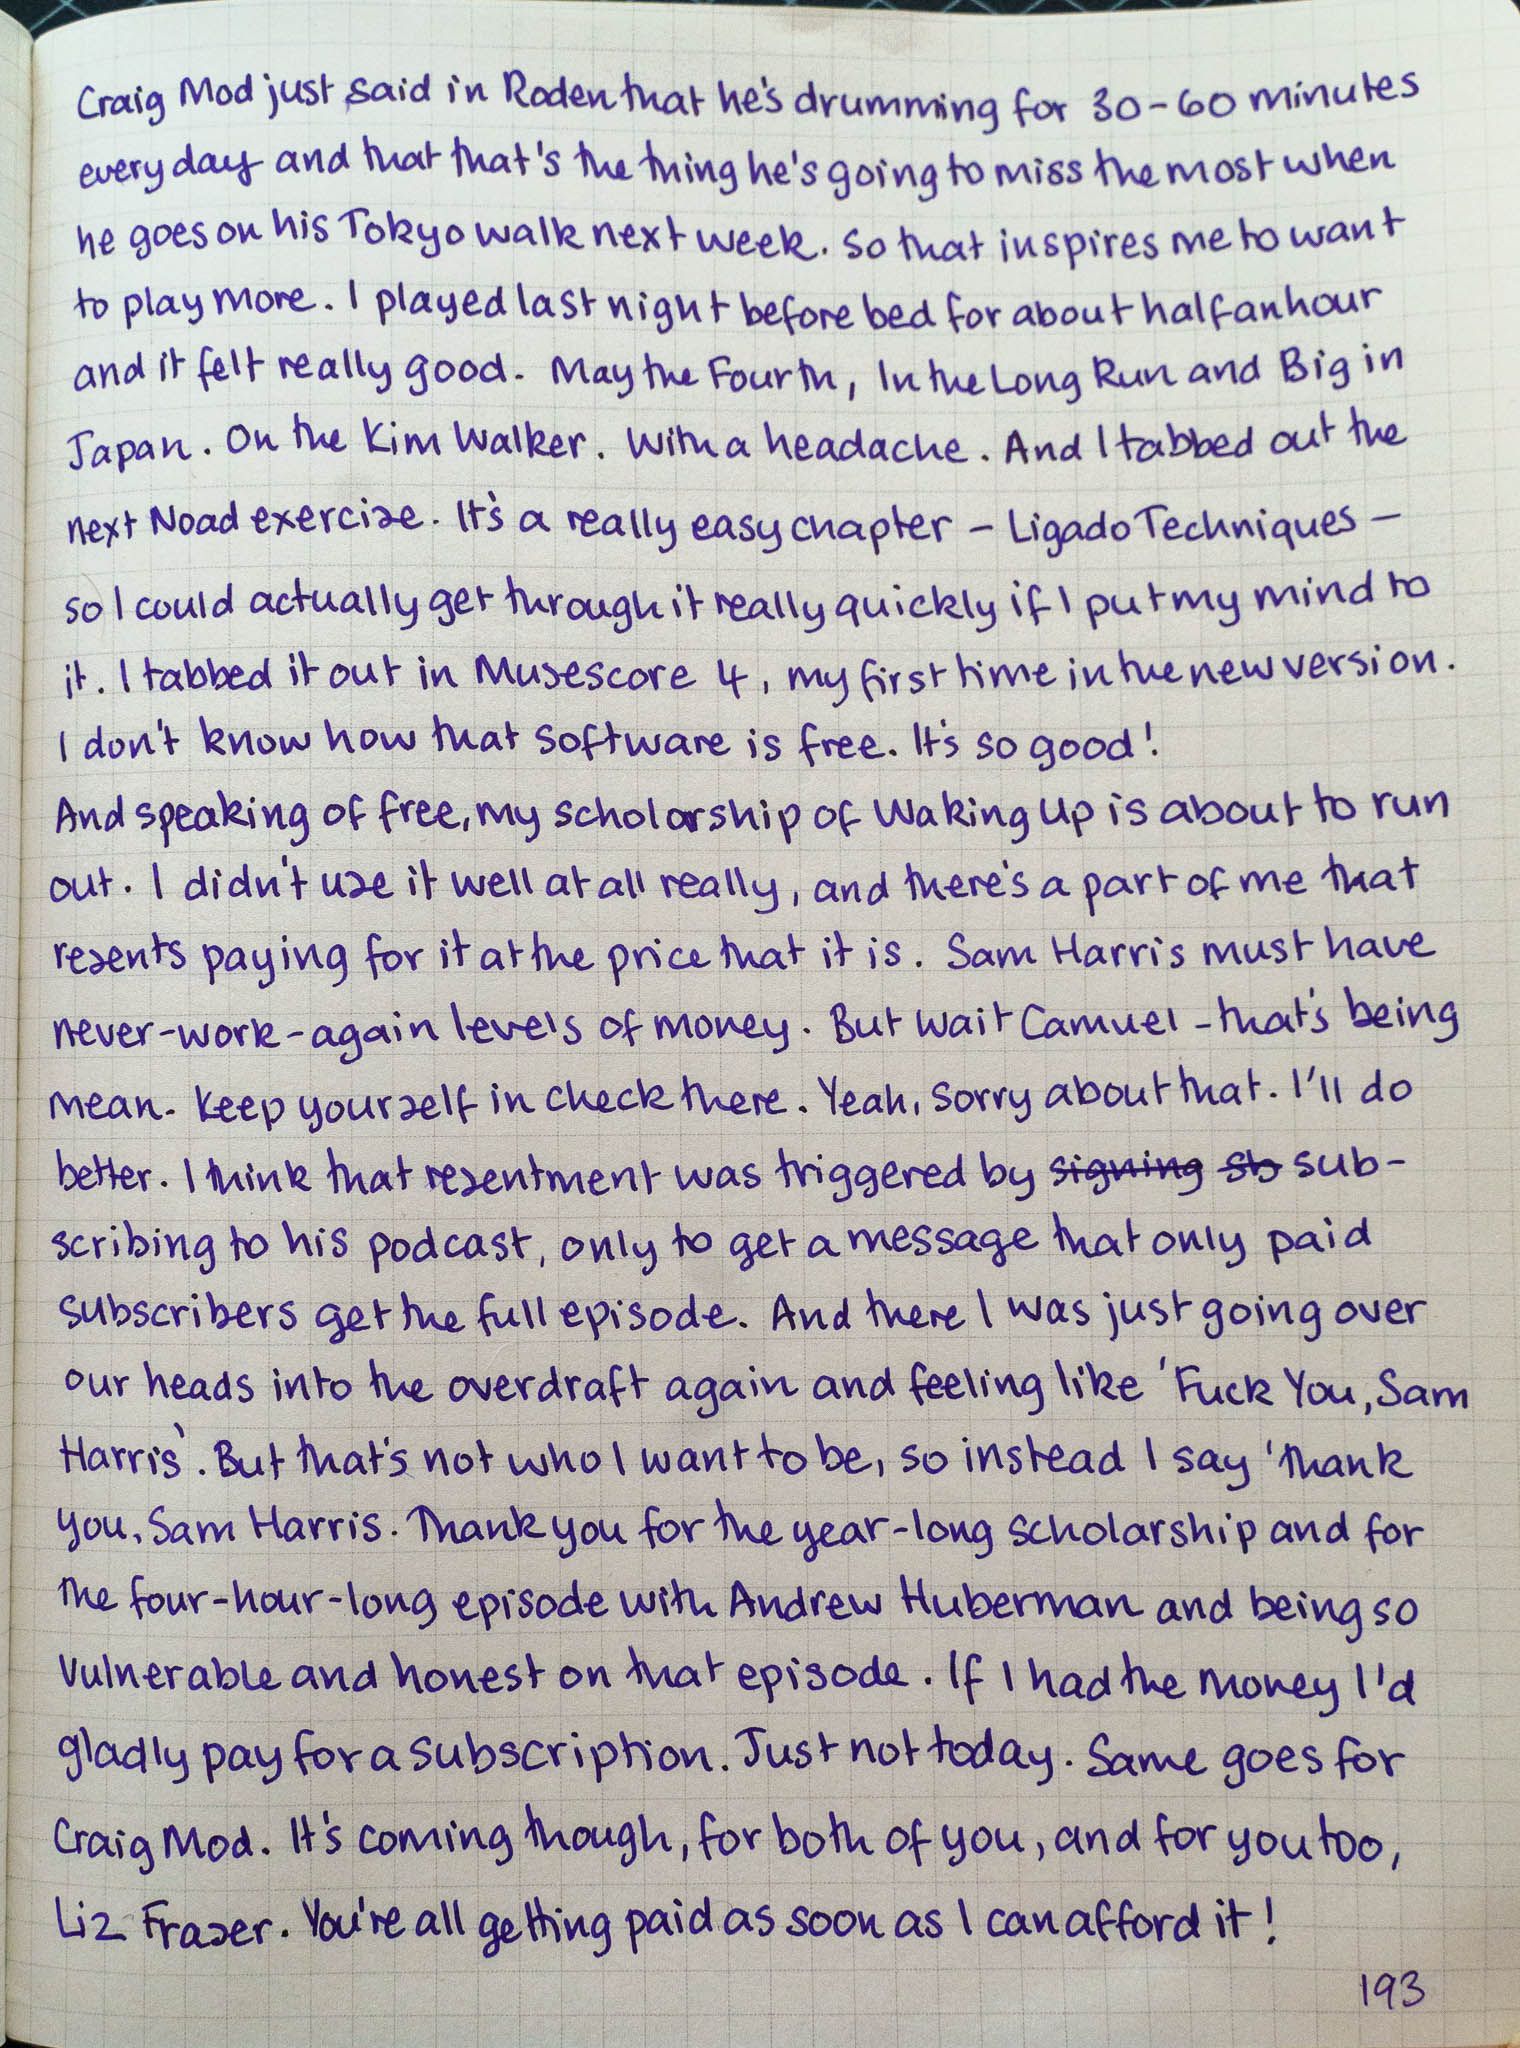 Craig Mod just said in Roden that he's drumming for 30-60 minutes
every day and that that's the thing he's going to miss the most when
he goes on his Tokyo walk next week. So that inspires me to want
to play more. I played last night before bed for about half an hour
and it felt really good. May the Fourth, In the Long Run and Big in
Japan. On the Kim Walker. With a headache. And I tabbed out the
next Noad exercise. It's a really easy chapter - Ligado Techniques -
so I could actually get through it really quickly if I put my mind to
it. I tabbed it out in Musescore 4, my first time in the new version.
I don't know how that software is free. It's so good!
And speaking of free, my scholarship of Waking Up is about to run
out. I didn't use it well at all really, and there's a part of me that
resents paying for it at the price that it is. Sam Harris must have
never-work-again levels of money. But wait Camuel - that's being
mean. Keep yourself in check there. Yeah, sorry about that. I'll do
better. I think that resentment was triggered by signing sb sub-
scribing to his podcast, only to get a message that only paid
subscribers get the full episode. And there I was just going over
our heads into the overdraft again and feeling like 'Fuck You, Sam
Harris'. But that's not who I want to be, so instead I say 'Thank
you, Sam Harris. Thank you for the year-long scholarship and for
the four-hour-long episode with Andrew Huberman and being so
vulnerable and honest on that episode. If I had the money I'd
gladly pay for a subscription. Just not today. Same goes for
Craig Mod. It's coming though, for both of you, and for you too,
Liz Fraser. You're all getting paid as soon as I can afford it!
193